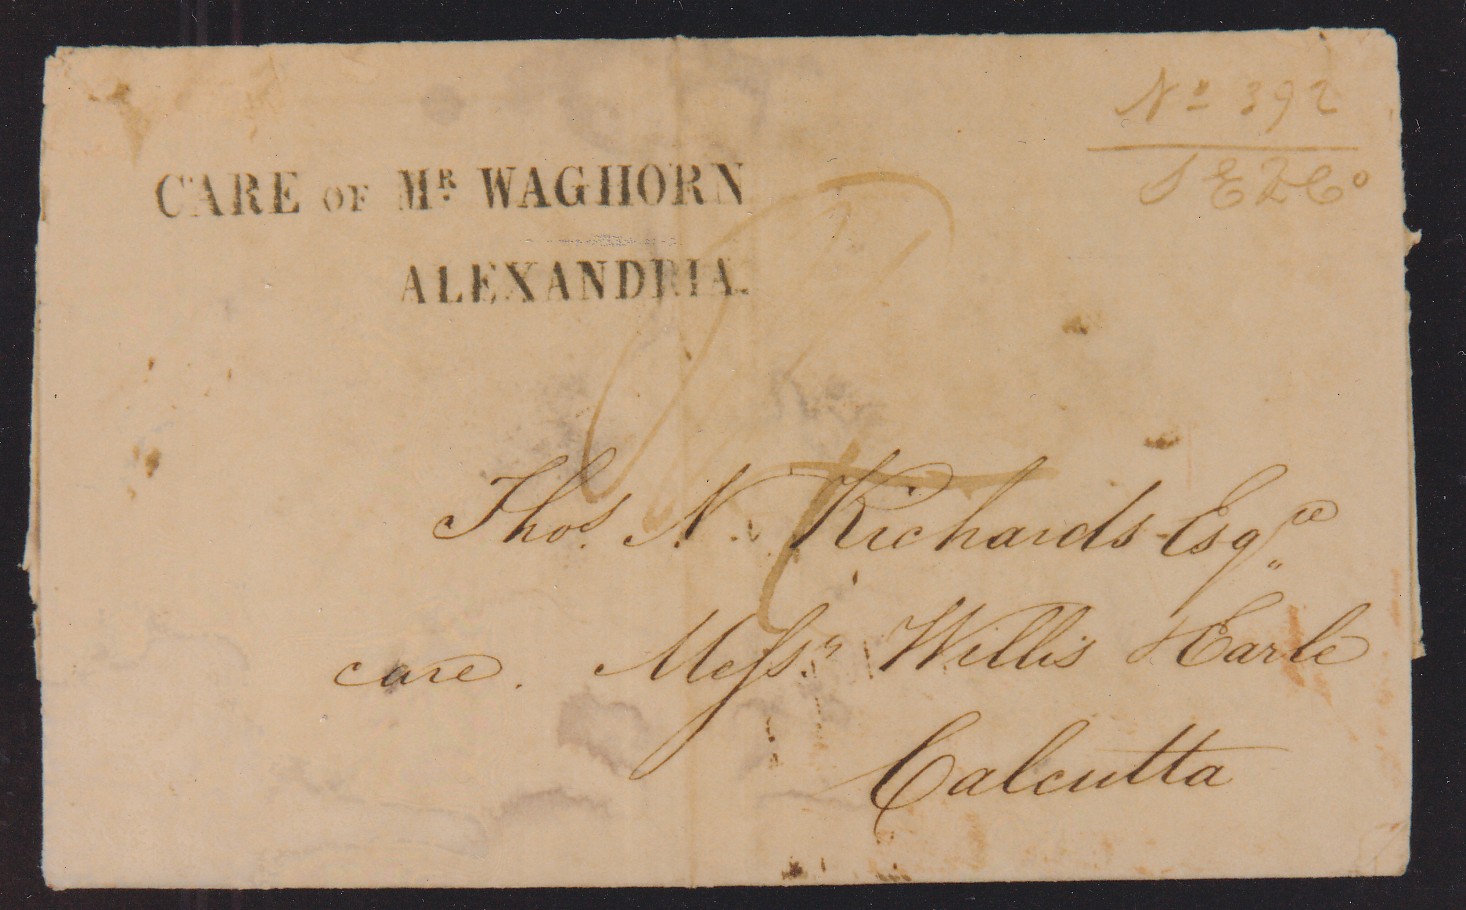 Nº 392
CARE OF Mᴿ. WAGHORN
ALEXANDRIA.
Thos. N. Richards Esqre
care. Messrs Willis Earle
Calcutta